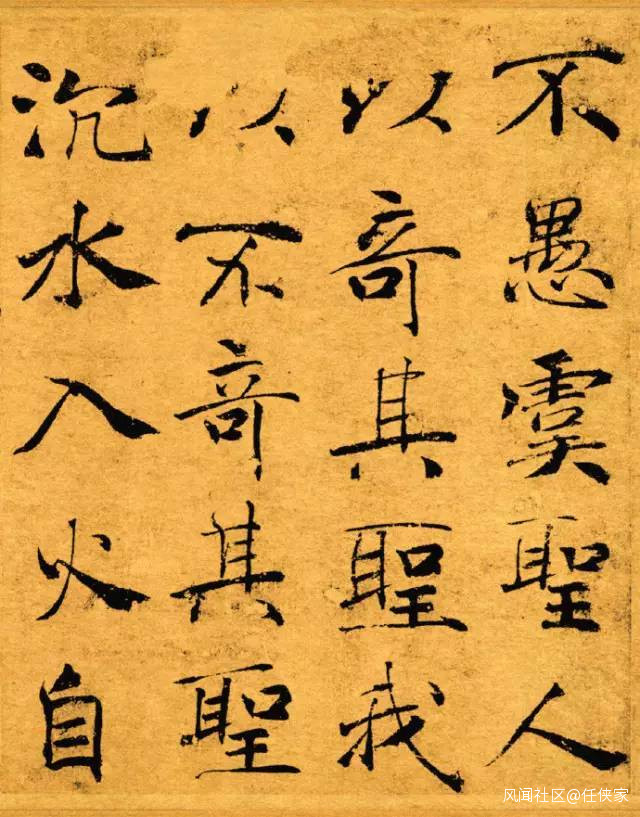 不愚虞聖人
以竒其聖我
以不竒其聖
沉水入火自
风闻社区@任侠家